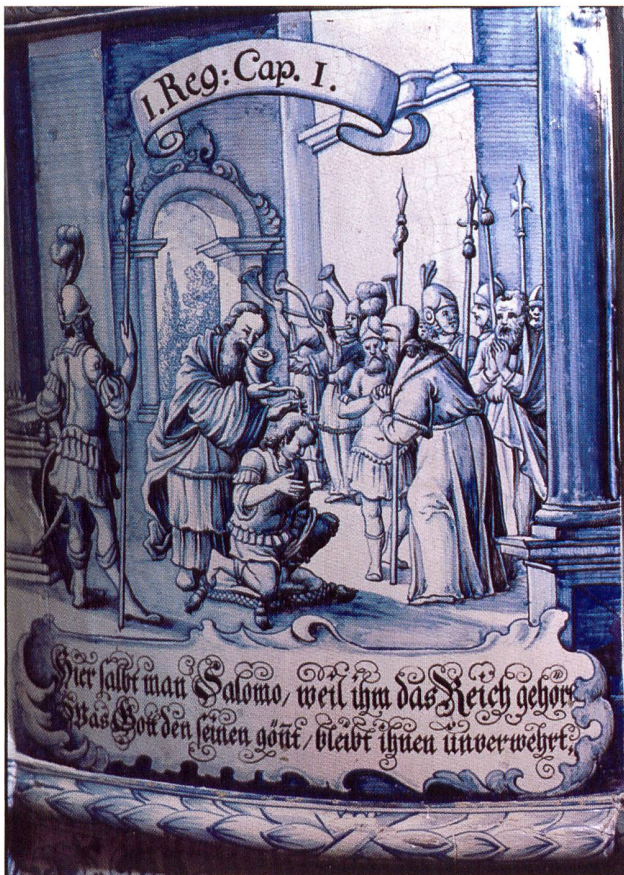 1. Reg: Cap. 1.
Hier salbt man Salomo / weil ihm das Reich gehört
Was Gott den seinen gönt̅ / bleibt ihnen ünverwehrt,